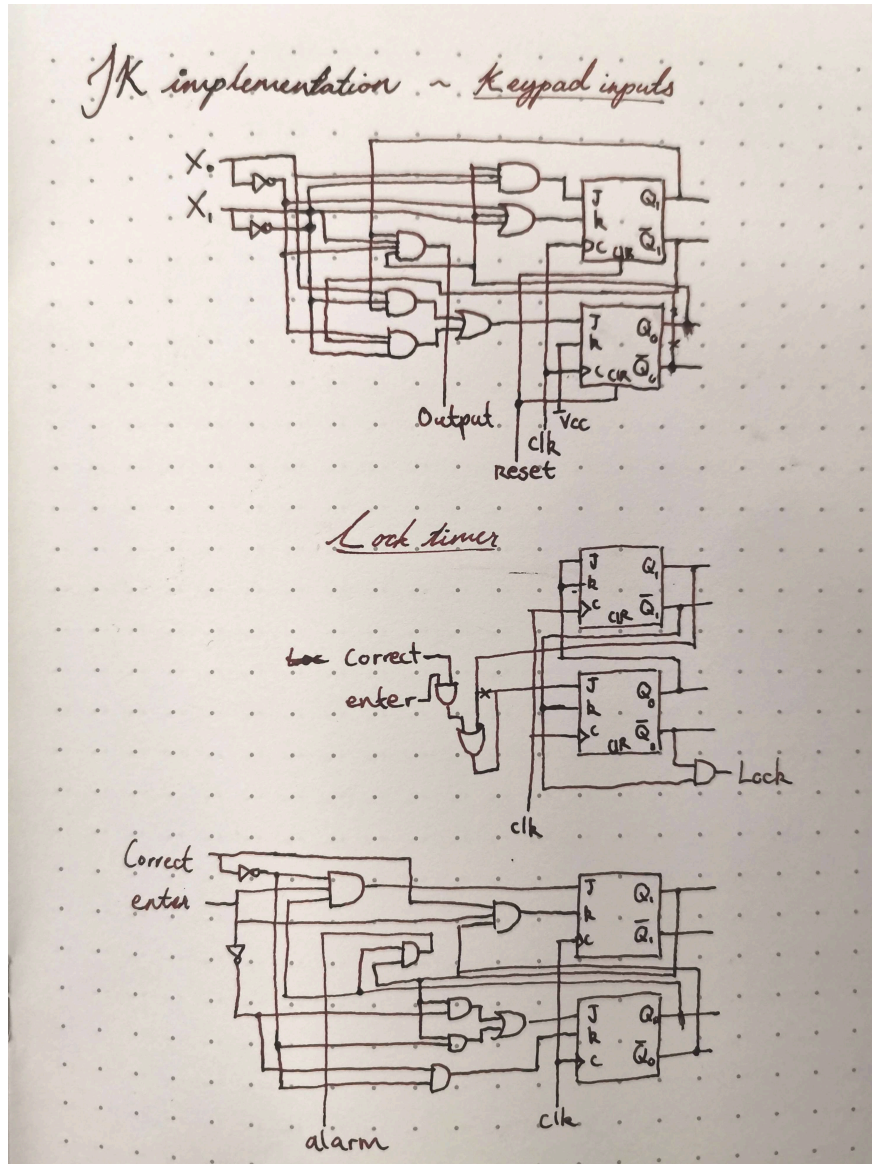 JK implementation ~ Keypad inputs
X₀
X₁
J Q₁
K Q̅₁
C CLR
J Q₀
K Q̅₀
C CLR
Output
Vcc
clk
reset
Lock timer
J Q₁
K Q̅₁
C CLR
Correct
enter
J Q₀
K Q̅₀
C CLR
Lock
clk
Correct
enter
J Q₁
K Q̅₁
C
J Q₀
K Q̅₀
C
clk
alarm